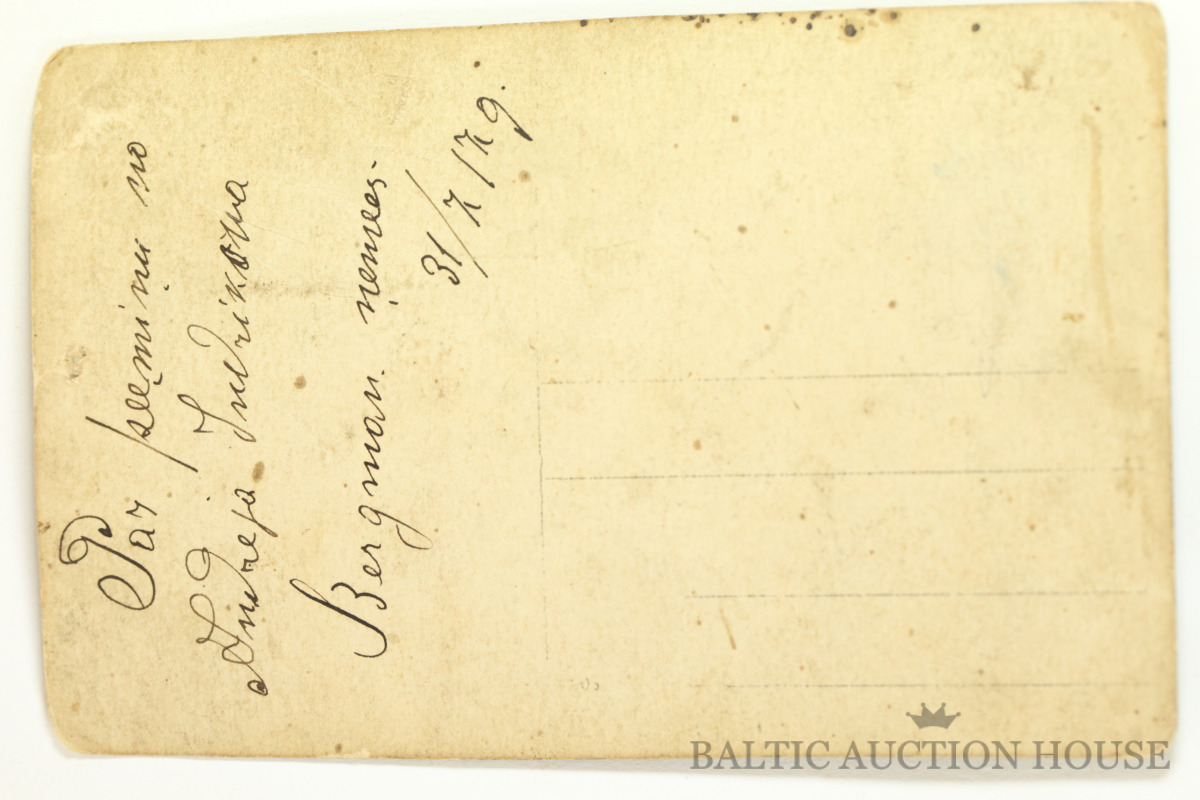 Par peemiņu no
Andreja Indrikowa
Bergman ņemees.
31/7 17 g.
BALTIC AUCTION HOUSE